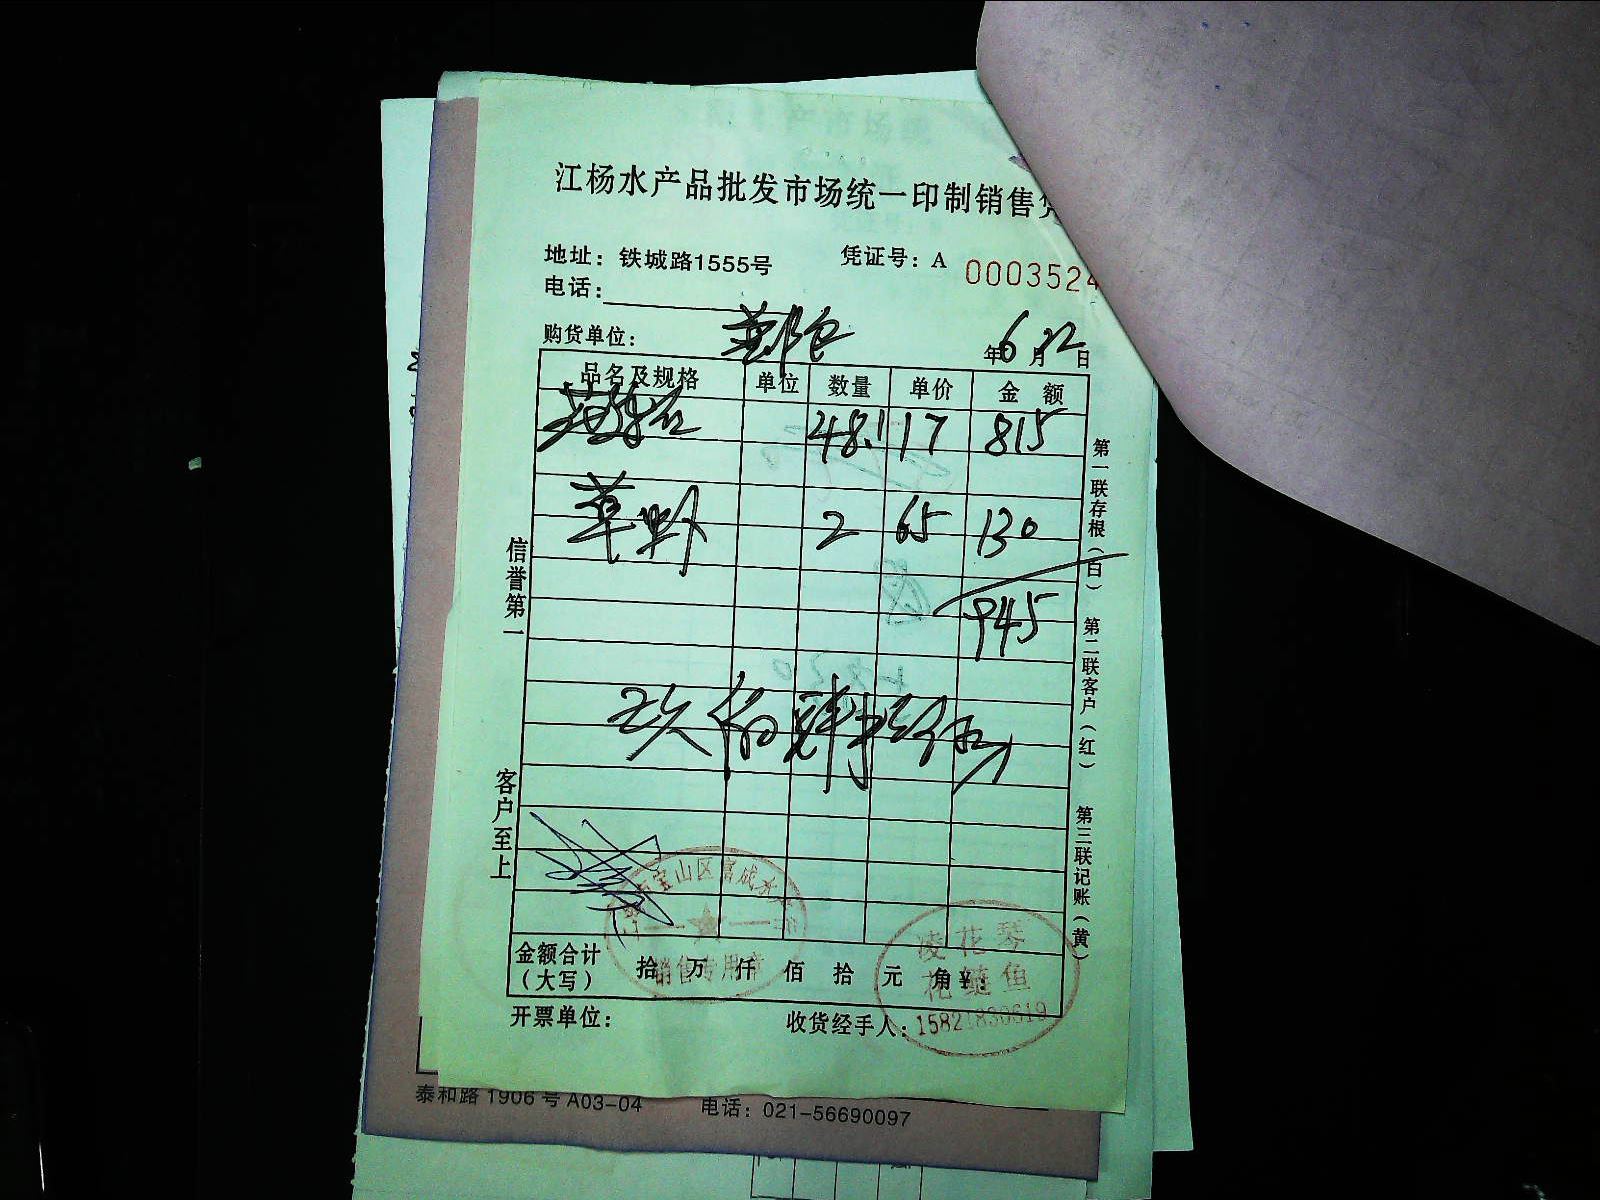 江杨水产品批发市场统一印制销售
地址：铁城路1555号 凭证号：A 0003524
电话：
购货单位： 年6月22日
品名及规格 单位 数量 单价 金 额
48.1 17 815
草 2 65 130
945
玖佰肆拾伍
信誉第一
客户至上
第一联存根（白） 第二联客户（红） 第三联记账（黄）
宝山区富成水
销售专用章
金额合计（大写） 拾 万 仟 佰 拾 元 角 ¥：
凌花琴
花鲢鱼
15821830619
开票单位： 收货经手人：
泰和路1906号A03-04 电话：021-56690097